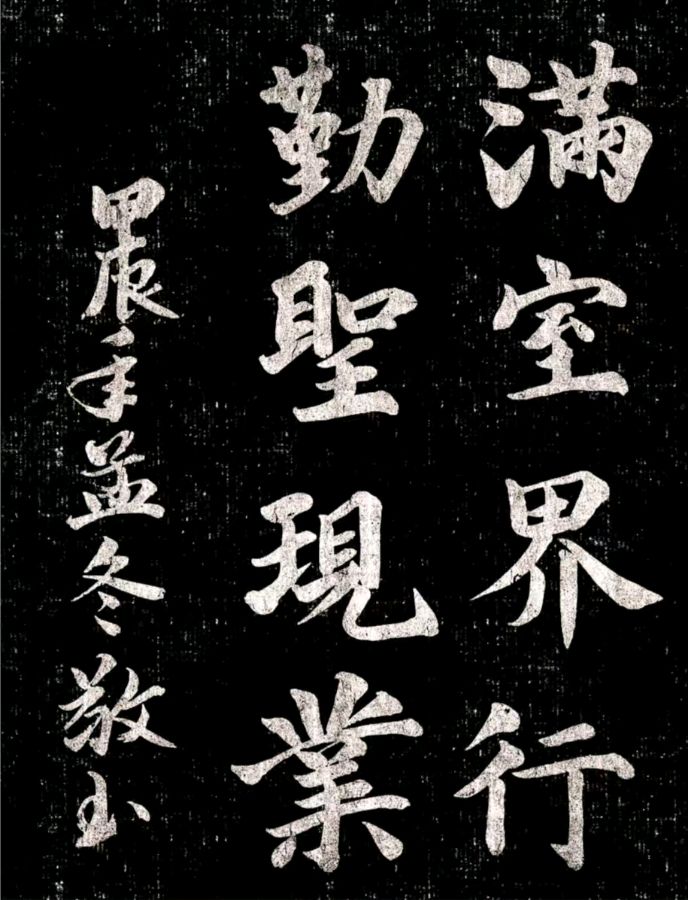 滿室界行
勤聖現業
甲辰年孟冬敬书